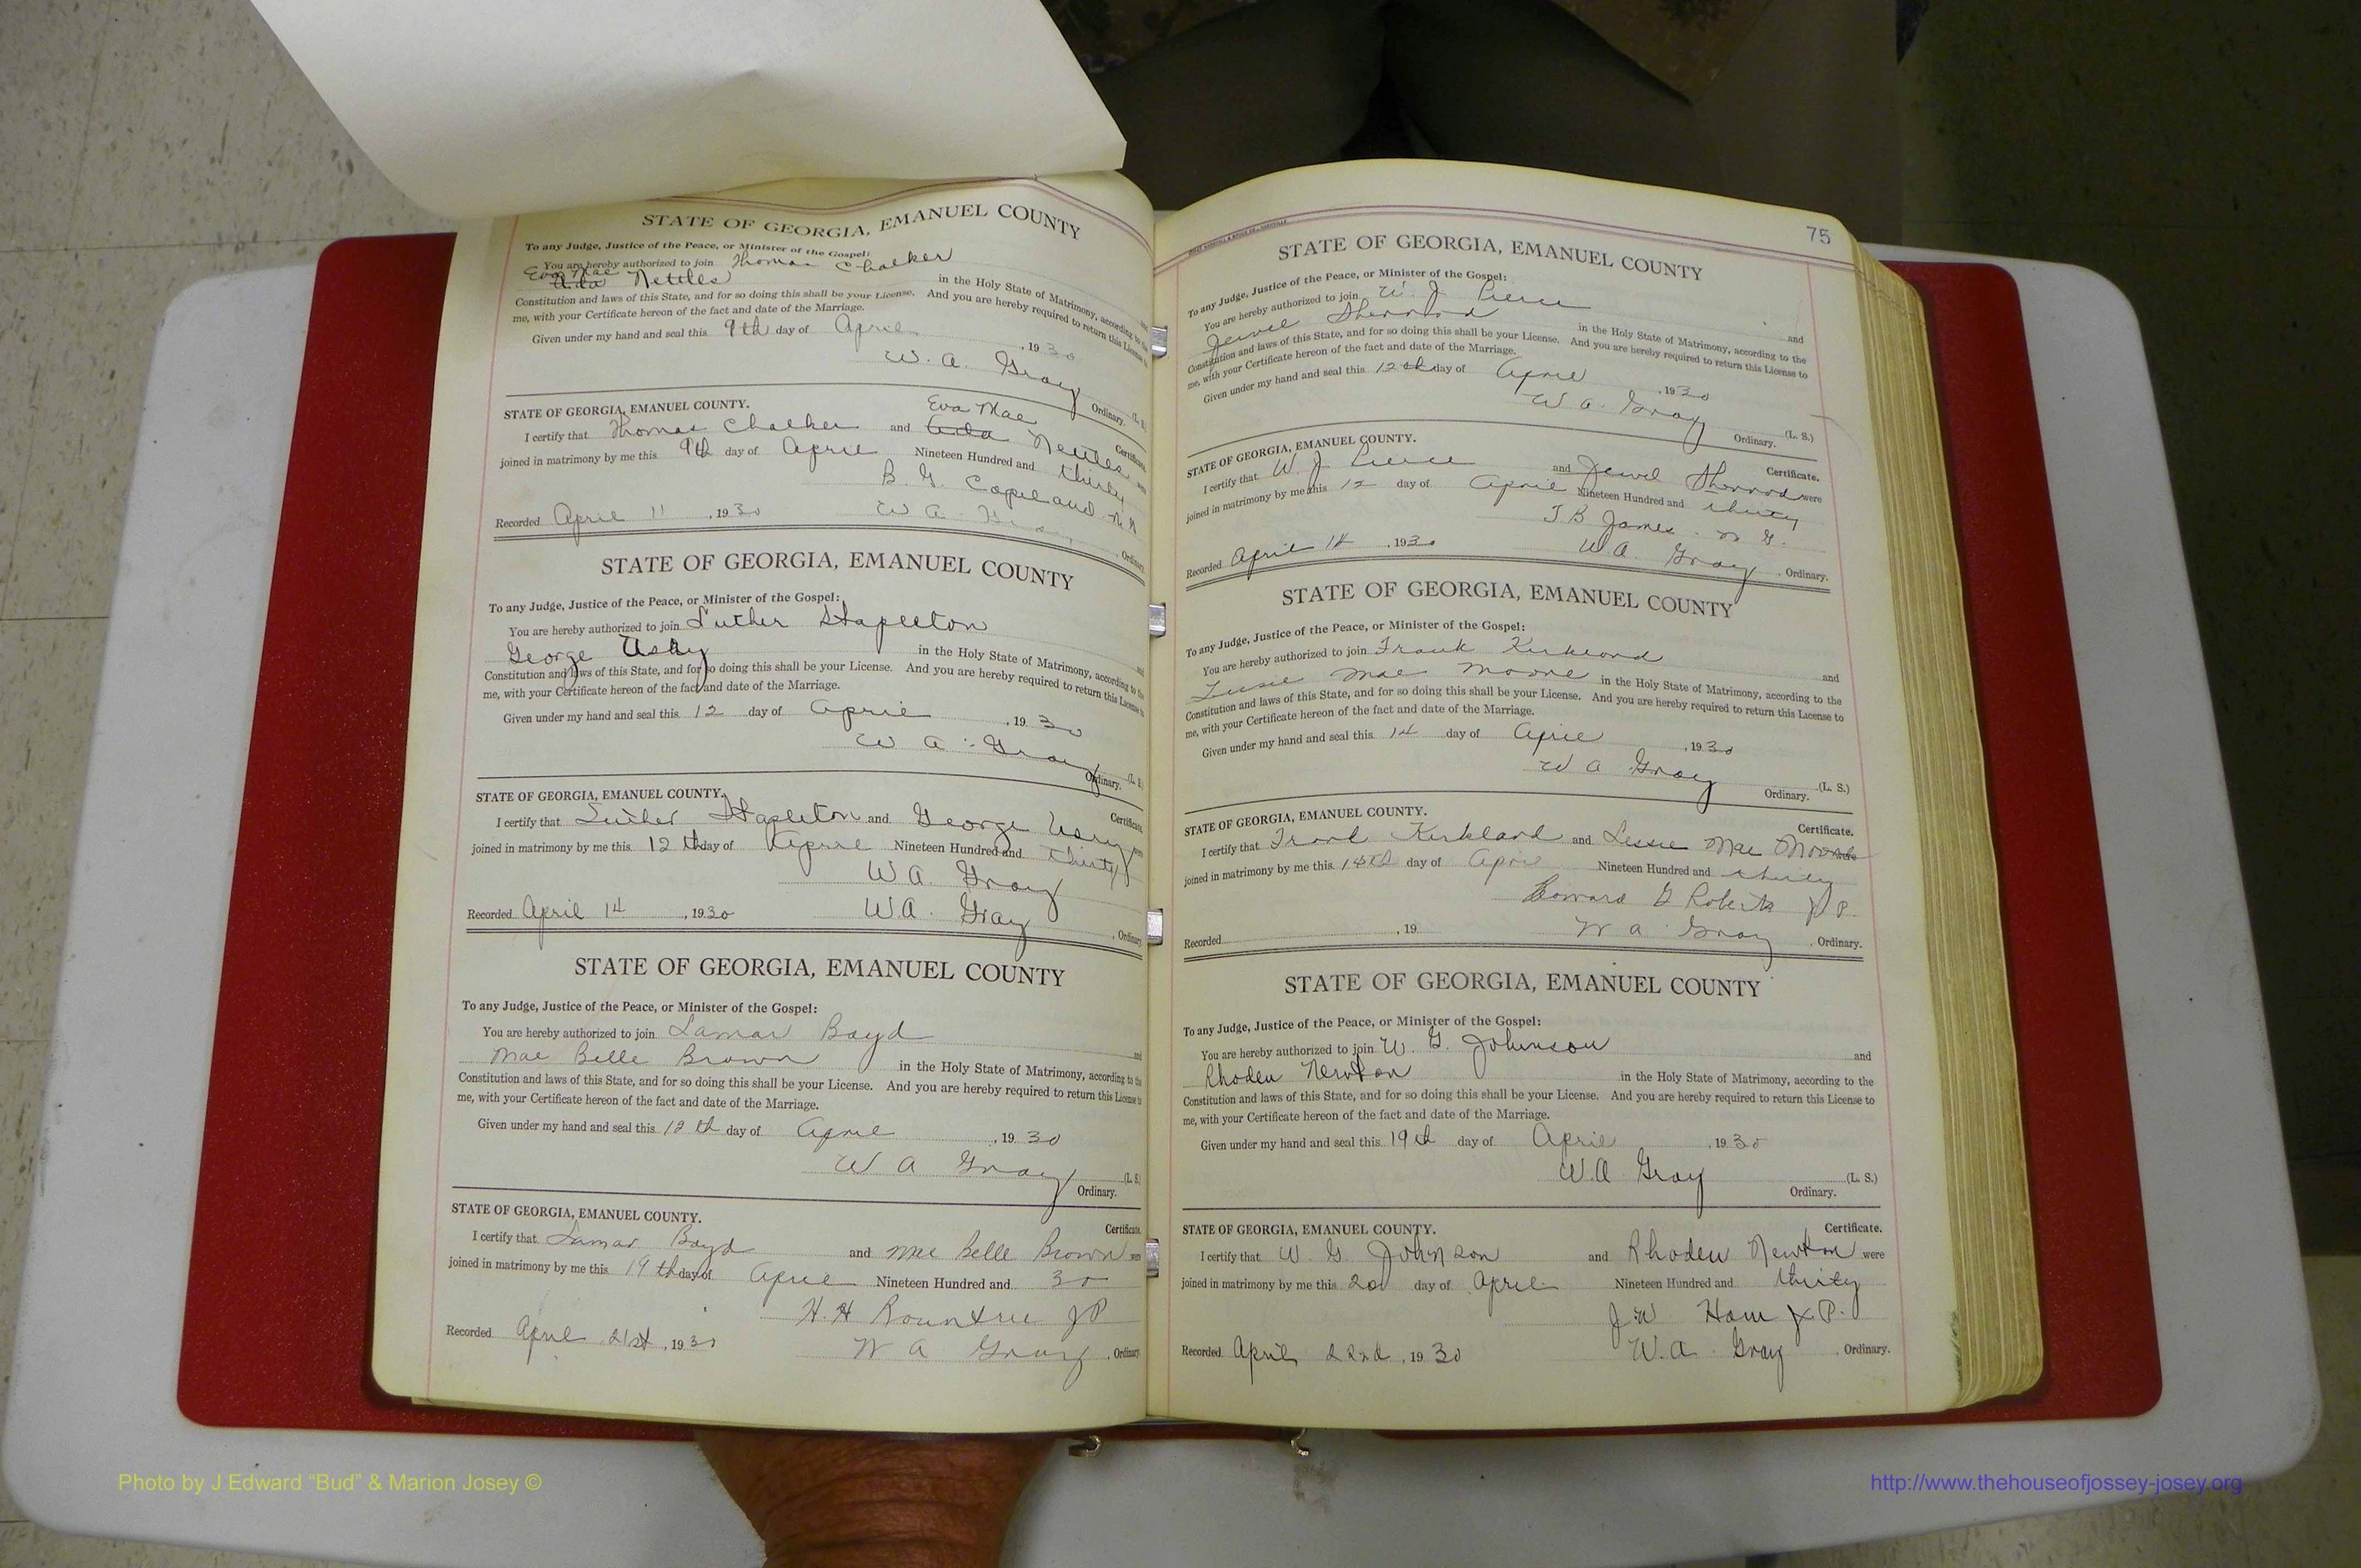 STATE OF GEORGIA, EMANUEL COUNTY
To any Judge, Justice of the Peace, or Minister of the Gospel:
You are hereby authorized to join Thomas Chalker
Eva Mae
Ada Nettles in the Holy State of Matrimony, according to the
Constitution and laws of this State, and for so doing this shall be your License. And you are hereby required to return this License to
me, with your Certificate hereon of the fact and date of the Marriage.
Given under my hand and seal this 9th day of April , 1930
W. A. Gray (L. S.)
Ordinary.
STATE OF GEORGIA, EMANUEL COUNTY. Certificate.
Eva Mae
I certify that Thomas Chalker and Nettles
joined in matrimony by me this 9th day of April Nineteen Hundred and thirty
B. G. Copeland
Recorded April 11 , 1930 W A Ordinary
STATE OF GEORGIA, EMANUEL COUNTY
To any Judge, Justice of the Peace, or Minister of the Gospel:
You are hereby authorized to join Luther Stapleton and
George Usry in the Holy State of Matrimony, according to the
Constitution and laws of this State, and for so doing this shall be your License. And you are hereby required to return this License to
me, with your Certificate hereon of the fact and date of the Marriage.
Given under my hand and seal this 12 day of April , 1930
W A Gray (L. S.)
Ordinary.
STATE OF GEORGIA, EMANUEL COUNTY. Certificate.
I certify that Luther Stapleton and George Usry were
joined in matrimony by me this 12th day of April Nineteen Hundred and thirty
W A. Gray
Recorded April 14 , 1930 W.A. Gray , Ordinary
STATE OF GEORGIA, EMANUEL COUNTY
To any Judge, Justice of the Peace, or Minister of the Gospel:
You are hereby authorized to join Lamar Boyd and
Mae Belle Brown in the Holy State of Matrimony, according to the
Constitution and laws of this State, and for so doing this shall be your License. And you are hereby required to return this License to
me, with your Certificate hereon of the fact and date of the Marriage.
Given under my hand and seal this 12th day of April , 1930
W A Gray (L. S.)
Ordinary.
STATE OF GEORGIA, EMANUEL COUNTY. Certificate.
I certify that Lamar Boyd and Mae Belle Brown were
joined in matrimony by me this 19th day of April Nineteen Hundred and 30
H. H Rountree JP
Recorded April 21st , 1930 W A Gray , Ordinary
75
STATE OF GEORGIA, EMANUEL COUNTY
To any Judge, Justice of the Peace, or Minister of the Gospel:
You are hereby authorized to join W. J. Pierce and
Jewel Sherrod in the Holy State of Matrimony, according to the
Constitution and laws of this State, and for so doing this shall be your License. And you are hereby required to return this License to
me, with your Certificate hereon of the fact and date of the Marriage.
Given under my hand and seal this 12th day of April , 1930
W a. Gray (L. S.)
Ordinary.
STATE OF GEORGIA, EMANUEL COUNTY. Certificate.
I certify that W. J. Pierce and Jewel Sherrod were
joined in matrimony by me this 12 day of April Nineteen Hundred and thirty
J B James M. G.
Recorded April 14 , 1930 W A. Gray , Ordinary.
STATE OF GEORGIA, EMANUEL COUNTY
To any Judge, Justice of the Peace, or Minister of the Gospel:
You are hereby authorized to join Frank Kirkland and
Lessie Mae Moore in the Holy State of Matrimony, according to the
Constitution and laws of this State, and for so doing this shall be your License. And you are hereby required to return this License to
me, with your Certificate hereon of the fact and date of the Marriage.
Given under my hand and seal this 14 day of April , 1930
W a Gray (L. S.)
Ordinary.
STATE OF GEORGIA, EMANUEL COUNTY. Certificate.
I certify that Frank Kirkland and Lessie Mae Moore were
joined in matrimony by me this 14th day of April Nineteen Hundred and thirty
Howard G Roberts J P.
Recorded , 19 W a Gray , Ordinary.
STATE OF GEORGIA, EMANUEL COUNTY
To any Judge, Justice of the Peace, or Minister of the Gospel:
You are hereby authorized to join W. G. Johnson and
Rhoden Newton in the Holy State of Matrimony, according to the
Constitution and laws of this State, and for so doing this shall be your License. And you are hereby required to return this License to
me, with your Certificate hereon of the fact and date of the Marriage.
Given under my hand and seal this 19th day of April , 1930
W.A Gray (L. S.)
Ordinary.
STATE OF GEORGIA, EMANUEL COUNTY. Certificate.
I certify that W. G. Johnson and Rhoden Newton were
joined in matrimony by me this 20 day of April Nineteen Hundred and thirty
J. W Ham J.P.
Recorded April 22nd , 1930 W. A. Gray , Ordinary.
Photo by J Edward “Bud” & Marion Josey ©
http://www.thehouseofjossey-josey.org